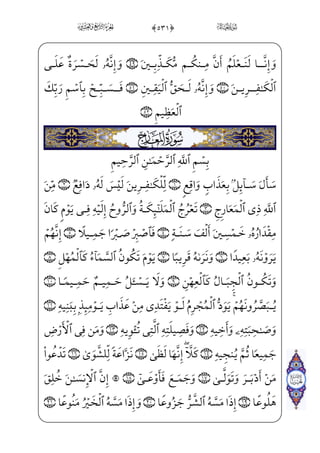 ﴿٥٣١﴾
وَإِنَّا لَنَعْلَمُ أَنَّ مِنكُم مُّكَذِّبِينَ ٤٩ وَإِنَّهُۥ لَحَسْرَةٌ عَلَى
ٱلْكَٰفِرِينَ ٥٠ وَإِنَّهُۥ لَحَقُّ ٱلْيَقِينِ ٥١ فَسَبِّحْ بِٱسْمِ رَبِّكَ
ٱلْعَظِيمِ ٥٢
سُورَةُ المَعَارِجِ
بِسْمِ ٱللَّهِ ٱلرَّحْمَٰنِ ٱلرَّحِيمِ
سَأَلَ سَآئِلٌۢ بِعَذَابٍ وَاقِعٍ ١ لِّلْكَٰفِرِينَ لَيْسَ لَهُۥ دَافِعٌ ٢ مِّنَ
ٱللَّهِ ذِى ٱلْمَعَارِجِ ٣ تَعْرُجُ ٱلْمَلَٰٓئِكَةُ وَٱلرُّوحُ إِلَيْهِ فِى يَوْمٍ كَانَ
مِقْدَارُهُۥ خَمْسِينَ أَلْفَ سَنَةٍ ٤ فَٱصْبِرْ صَبْرًا جَمِيلًا ٥ إِنَّهُمْ
يَرَوْنَهُۥ بَعِيدًا ٦ وَنَرَىٰهُ قَرِيبًا ٧ يَوْمَ تَكُونُ ٱلسَّمَآءُ كَٱلْمُهْلِ ٨
وَتَكُونُ ٱلْجِبَالُ كَٱلْعِهْنِ ٩ وَلَا يَسْـَٔلُ حَمِيمٌ حَمِيمًا ١٠
يُبَصَّرُونَهُمْ يَوَدُّ ٱلْمُجْرِمُ لَوْ يَفْتَدِى مِنْ عَذَابِ يَوْمِئِذٍۭ بِبَنِيهِ ١١
وَصَٰحِبَتِهِۦ وَأَخِيهِ ١٢ وَفَصِيلَتِهِ ٱلَّتِى تُـْٔوِيهِ ١٣ وَمَن فِى ٱلْأَرْضِ
جَمِيعًا ثُمَّ يُنجِيهِ ١٤ كَلَّآ إِنَّهَا لَظَىٰ ١٥ نَزَّاعَةً لِّلشَّوَىٰ ١٦ تَدْعُوا۟
مَنْ أَدْبَرَ وَتَوَلَّىٰ ١٧ وَجَمَعَ فَأَوْعَىٰٓ ١٨ ۞ إِنَّ ٱلْإِنسَٰنَ خُلِقَ
هَلُوعًا ١٩ إِذَا مَسَّهُ ٱلشَّرُّ جَزُوعًا ٢٠ وَإِذَا مَسَّهُ ٱلْخَيْرُ مَنُوعًا ٢١